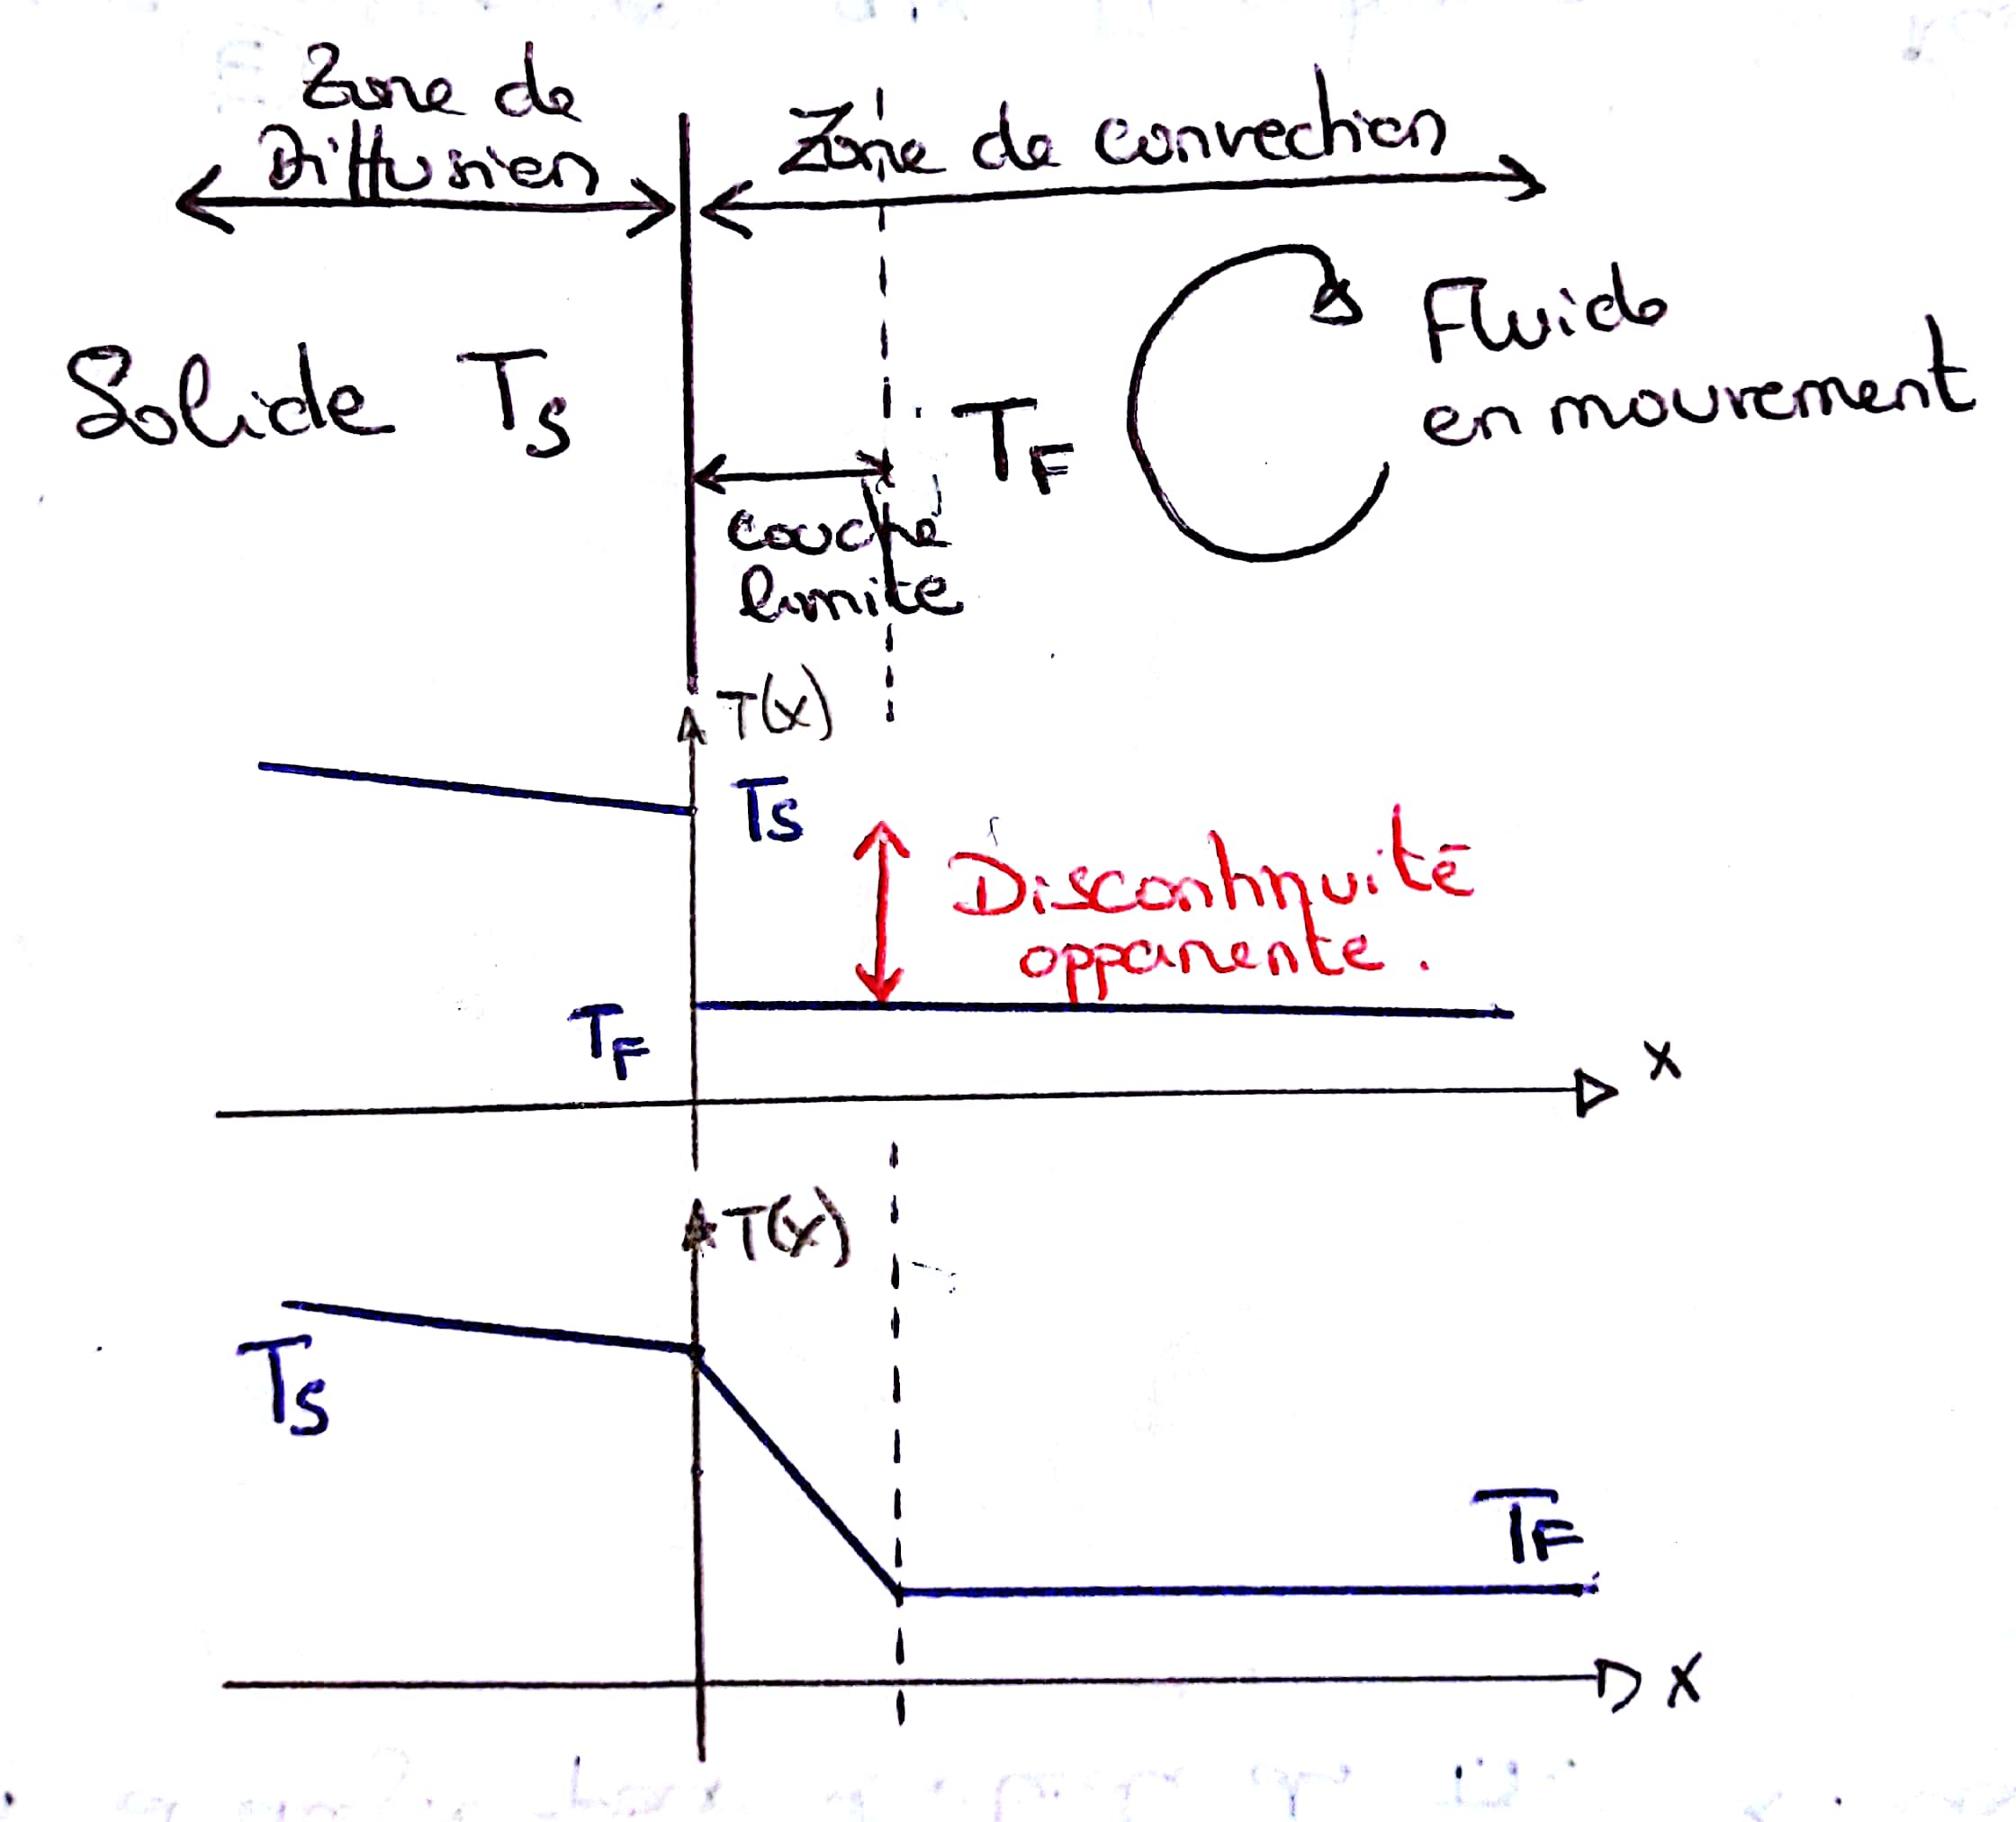 Zone de
Diffusion
Zone de convection
Solide Ts
TF
Fluide
en mouvement
couche
limite
T(x)
Ts
Discontinuité
apparente.
TF
x
T(x)
Ts
TF
x